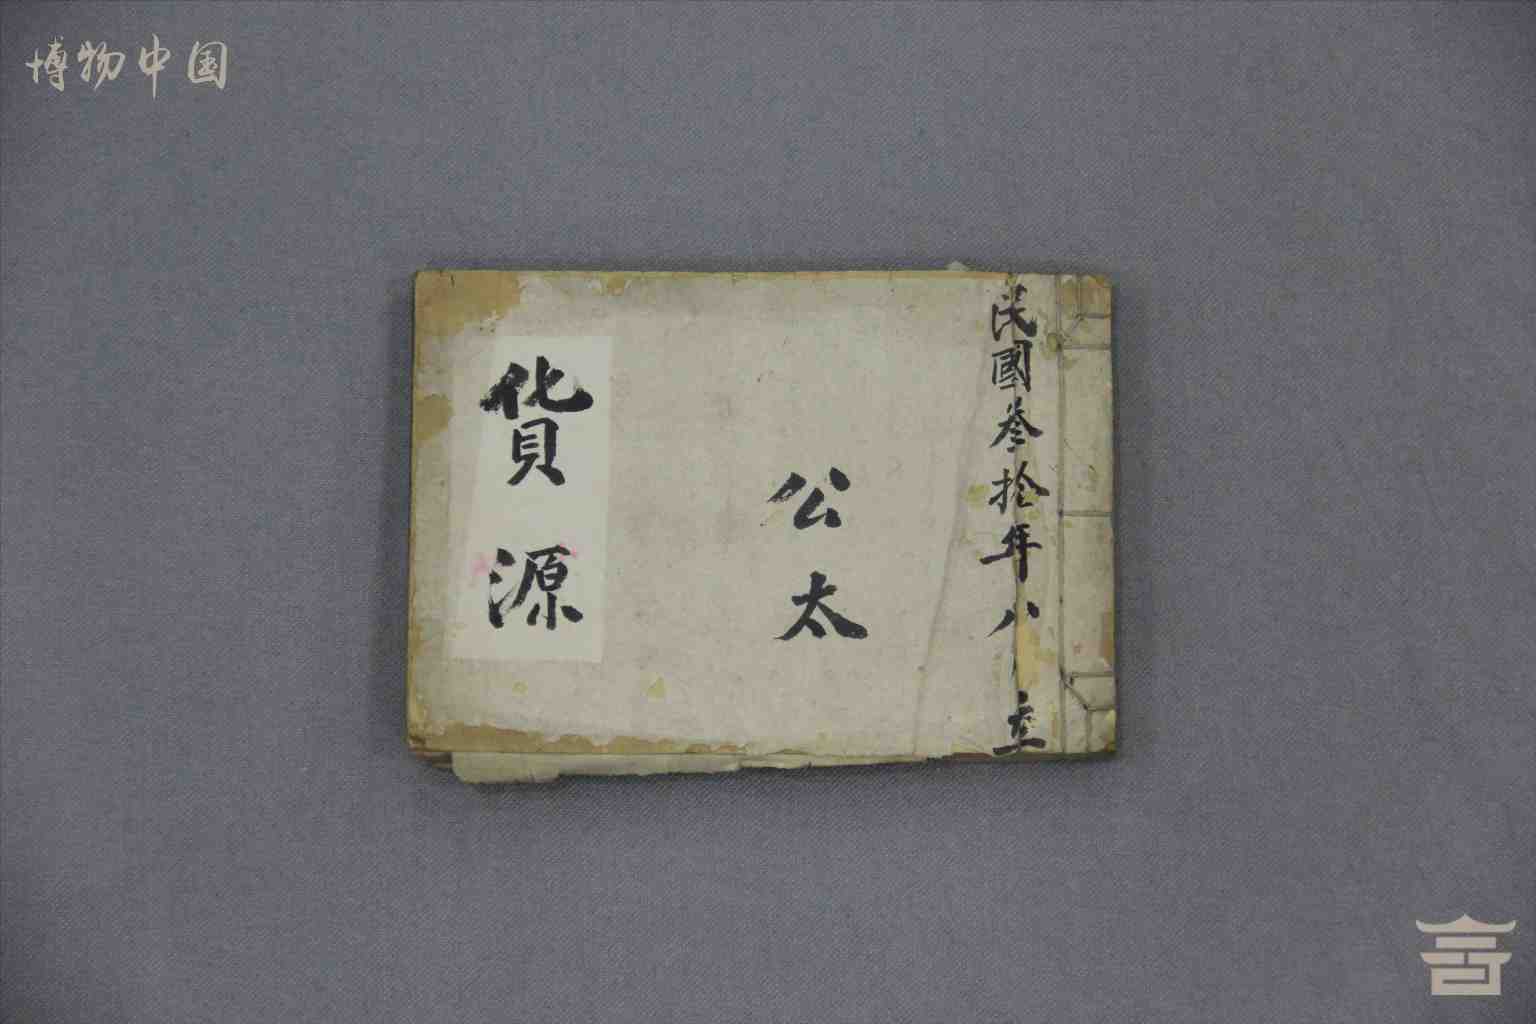 博物中国
民國叁拾年八立
公太
貨源